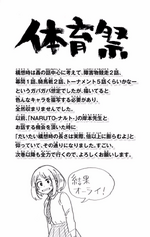 体育祭
構想時は轟の話中心に考えて、障害物競走２話、
幕間１話、騎馬戦２話、トーナメント５話くらいかなー
というガバガバ想定でしたが、描いてると
色んなキャラを描写する必要があり、
全然収まりませんでした。
以前、「NARUTO-ナルト-」の岸本先生と
お話する機会を頂いた時に
「だいたい構想時の長さは実際、倍以上に膨らむよ」と
仰っていて、その通りになりました。すごい。
次巻以降も全力で行くので、よろしくお願いします。
結果
オーライ！